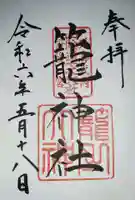 奉拝
籠神社
令和六年五月十八日